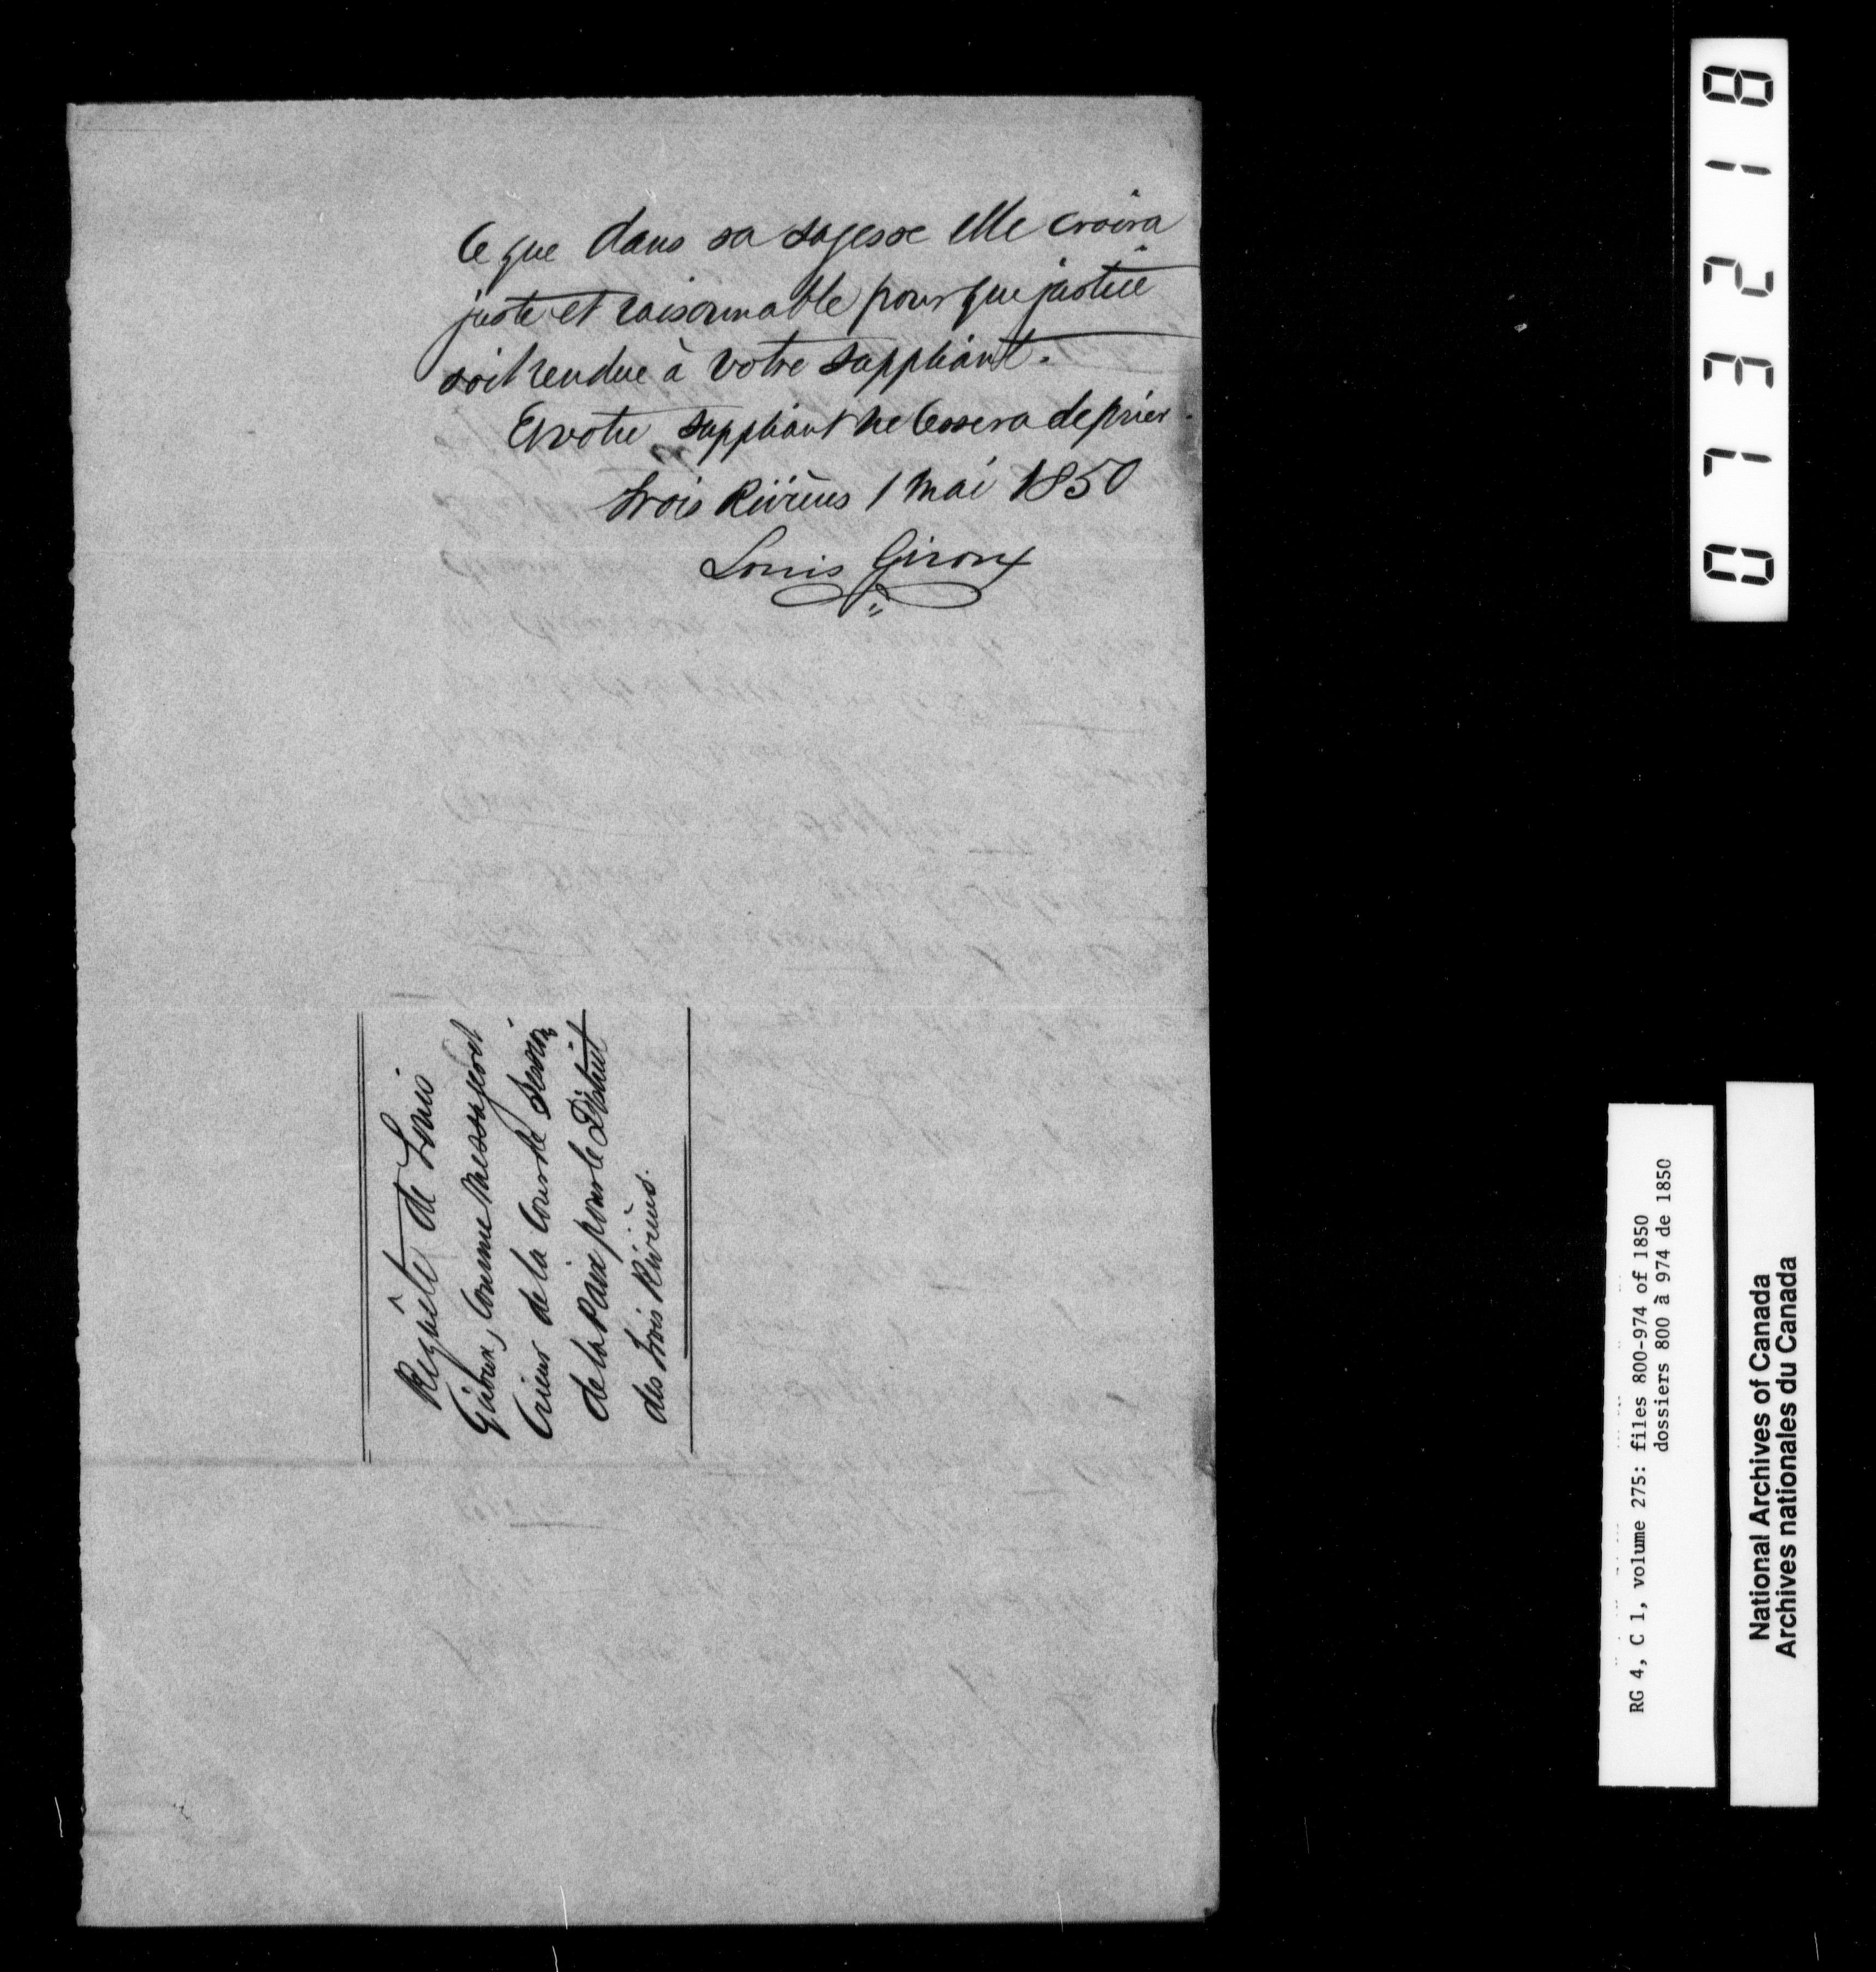 Ce que dans sa sagesse elle croira
juste et raisonnable pour que justice
soit rendue à votre suppliant.
Et votre suppliant ne Cessera de prier.
Trois Rivières 1 Mai 1850
Louis Giroux
Requête de Louis
Giroux, Comme Messager et
Crieur de la Cour de Session
de la Paix pour le District
des Trois Rivières.
073218
RG 4, C 1, volume 275: files 800-974 of 1850
dossiers 800 à 974 de 1850
National Archives of Canada
Archives nationales du Canada